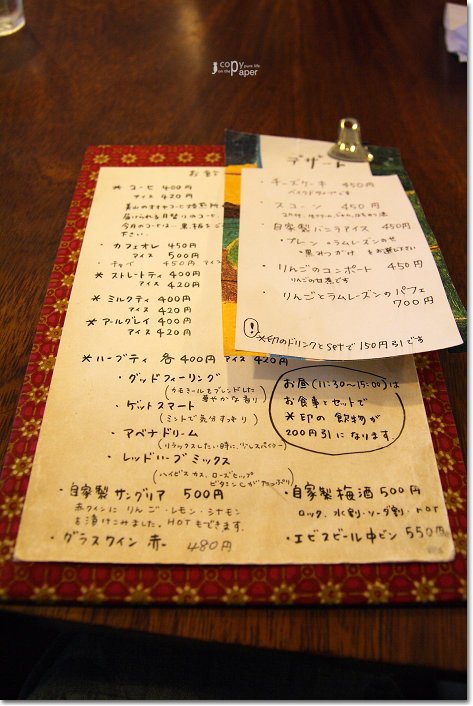 copy
pure life
on the
paper
お飲
※ コーヒー 400円
アイス 420円
美山のオオヤコーヒ焙煎所
届けられる月替りのコーヒ
今月のコーヒは 黒板をご
下さい。
・カフェオレ 450円
アイス 500円
・チャイ 450円 アイス
※ ストレートティ 400円
アイス 420円
※ ミルクティ 400円
アイス 420円
※ アールグレイ 400円
アイス 420円
※ ハーブティ 各400円 アイス 420円
・グッドフィーリング
(カモミールをブレンドした
華やかな香り)
・ゲットスマート
(ミントで気分すっきり)
・アベナドリーム
(リラックスしたい時に、少しスパイシー)
・レッドハーブミックス
(ハイビスカス、ローズヒップ
ビタミンCがたっぷり)
・自家製サングリア 500円
赤ワインにりんご・レモン・シナモン
を漬けこみました。HOTもできます。
・グラスワイン 赤 480円
お昼(11:30〜15:00)は
お食事とセットで
※印の飲物が
200円引になります。
・自家製梅酒 500円
ロック、水割・ソーダ割・HOT
・エビスビール中ビン 550円
デザート
・チーズケーキ 450円
ベイクドタイプです
・スコーン 450円
・自家製バニラアイス 450円
・プレーン ・ラムレーズンのせ
・黒みつがけ をお選び下さい
・りんごのコンポート 450円
りんごの甘煮です
・りんごとラムレーズンのパフェ
700円
!
※印のドリンクとsetで150円引です